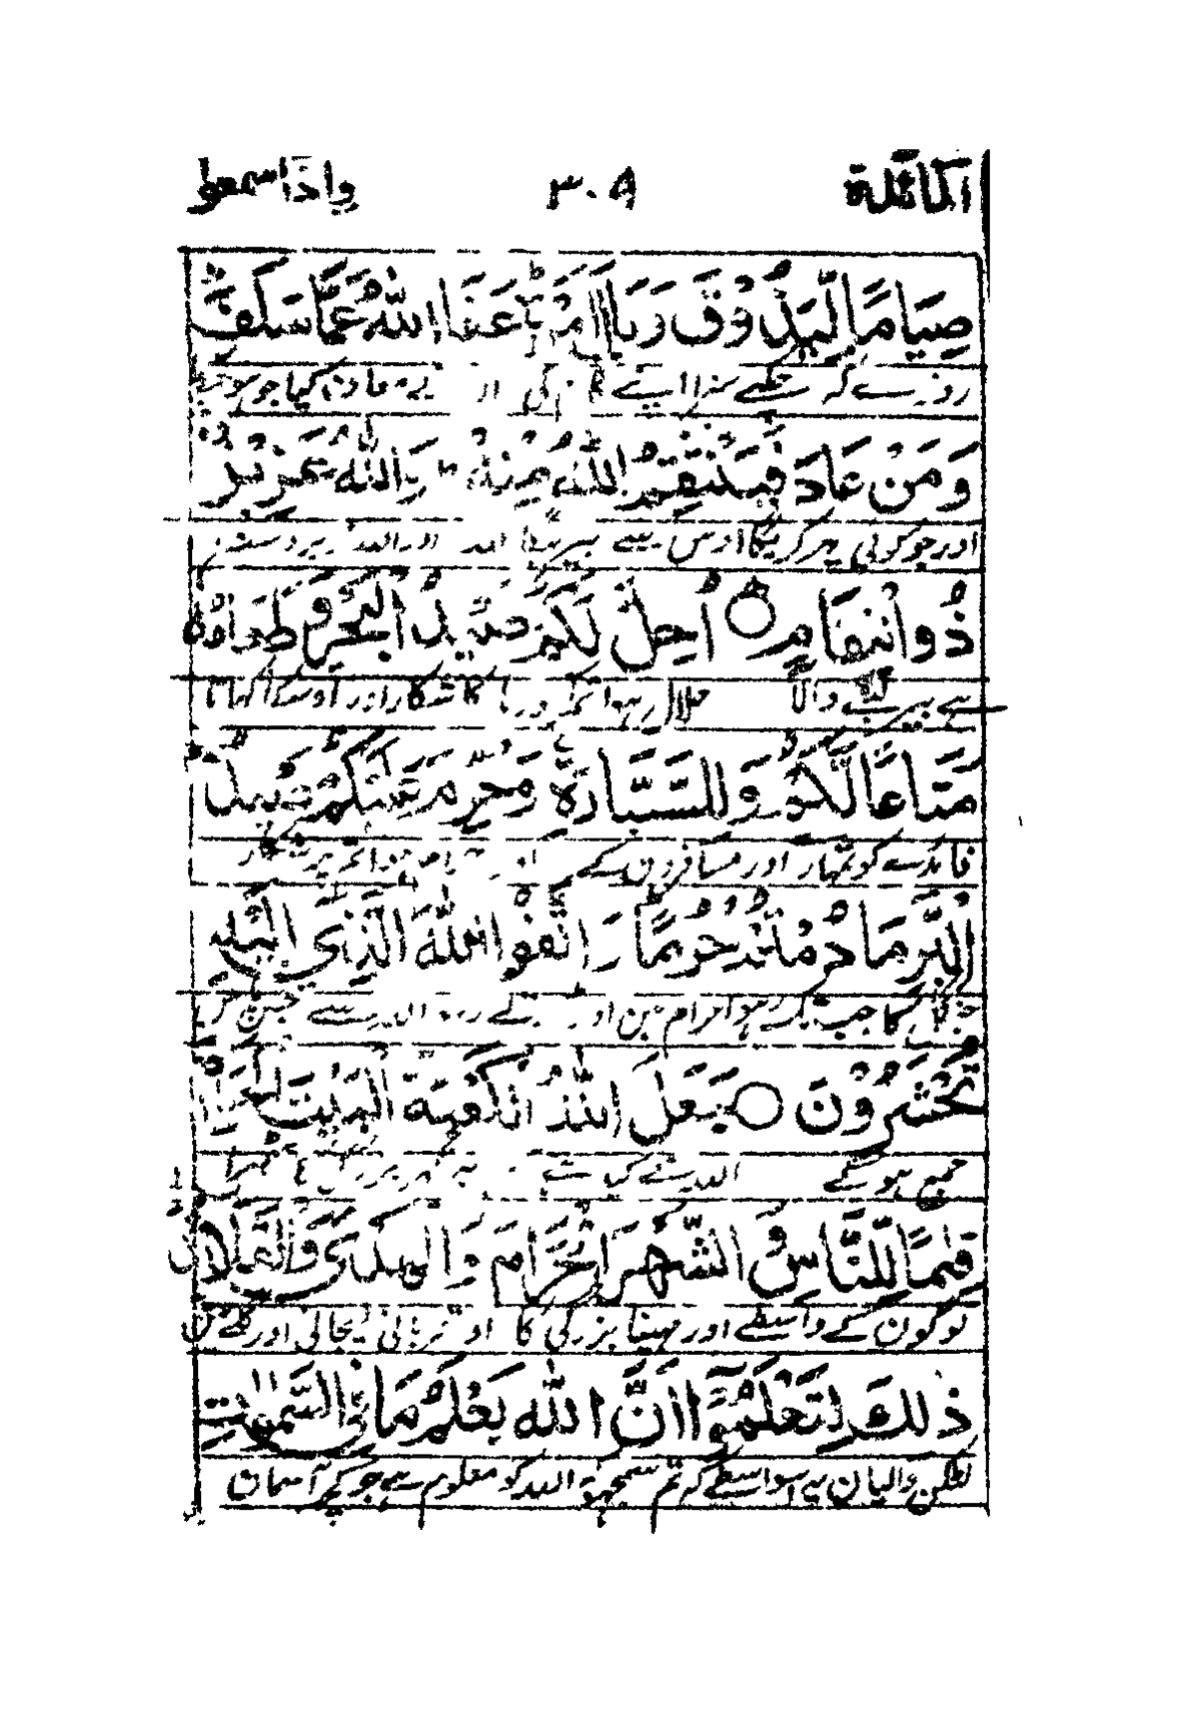 المائدة ٣٠٨ واذا سمعوا
صِيَامًا لِّيَذُوْقَ وَبَالَ اَمْرِهٖ عَفَا اللّٰهُ عَمَّا سَلَفَ
روزے کہ چکھے سزا اپنے کام کی معاف کیا جو ہو چکا
وَمَنْ عَادَ فَيَنْتَقِمُ اللّٰهُ مِنْهُ وَاللّٰهُ عَزِيْزٌ
اور جو کوئی پھر کریگا اوس سے بیر اللہ اور اللہ زبردست
ذُو انْتِقَامٍ ○ اُحِلَّ لَكُمْ صَيْدُ الْبَحْرِ وَطَعَامُهٗ
ہے بیر لینے والا حلال ہوا تمکو دریا کا شکار اور اوسکا کہانا
مَتَاعًا لَّكُمْ وَلِلسَّيَّارَةِ وَحُرِّمَ عَلَيْكُمْ صَيْدُ
فائدے کو تمہارے اور مسافرون کے تم پر شکار
الْبَرِّ مَا دُمْتُمْ حُرُمًا وَاتَّقُوا اللّٰهَ الَّذِيْٓ اِلَيْهِ
جنگل کا جب تک رہو احرام مین اور اللہ سے جس
تُحْشَرُوْنَ ○ جَعَلَ اللّٰهُ الْكَعْبَةَ الْبَيْتَ الْحَرَامَ
جمع ہو گے اللہ نے کیا گھر
قِيٰمًا لِّلنَّاسِ وَالشَّهْرَ الْحَرَامَ وَالْهَدْيَ وَالْقَلَآئِدَ
لوگون کے واسطے اور مہینا بزرگی کا اور قربانی لیجانی اور گلے مین
ذٰلِكَ لِتَعْلَمُوْٓا اَنَّ اللّٰهَ يَعْلَمُ مَا فِي السَّمٰوٰتِ
لٹکن والیان یہ اسواسطے کہ تم سمجھو اللہ کو معلوم ہے جو کچھ آسمان